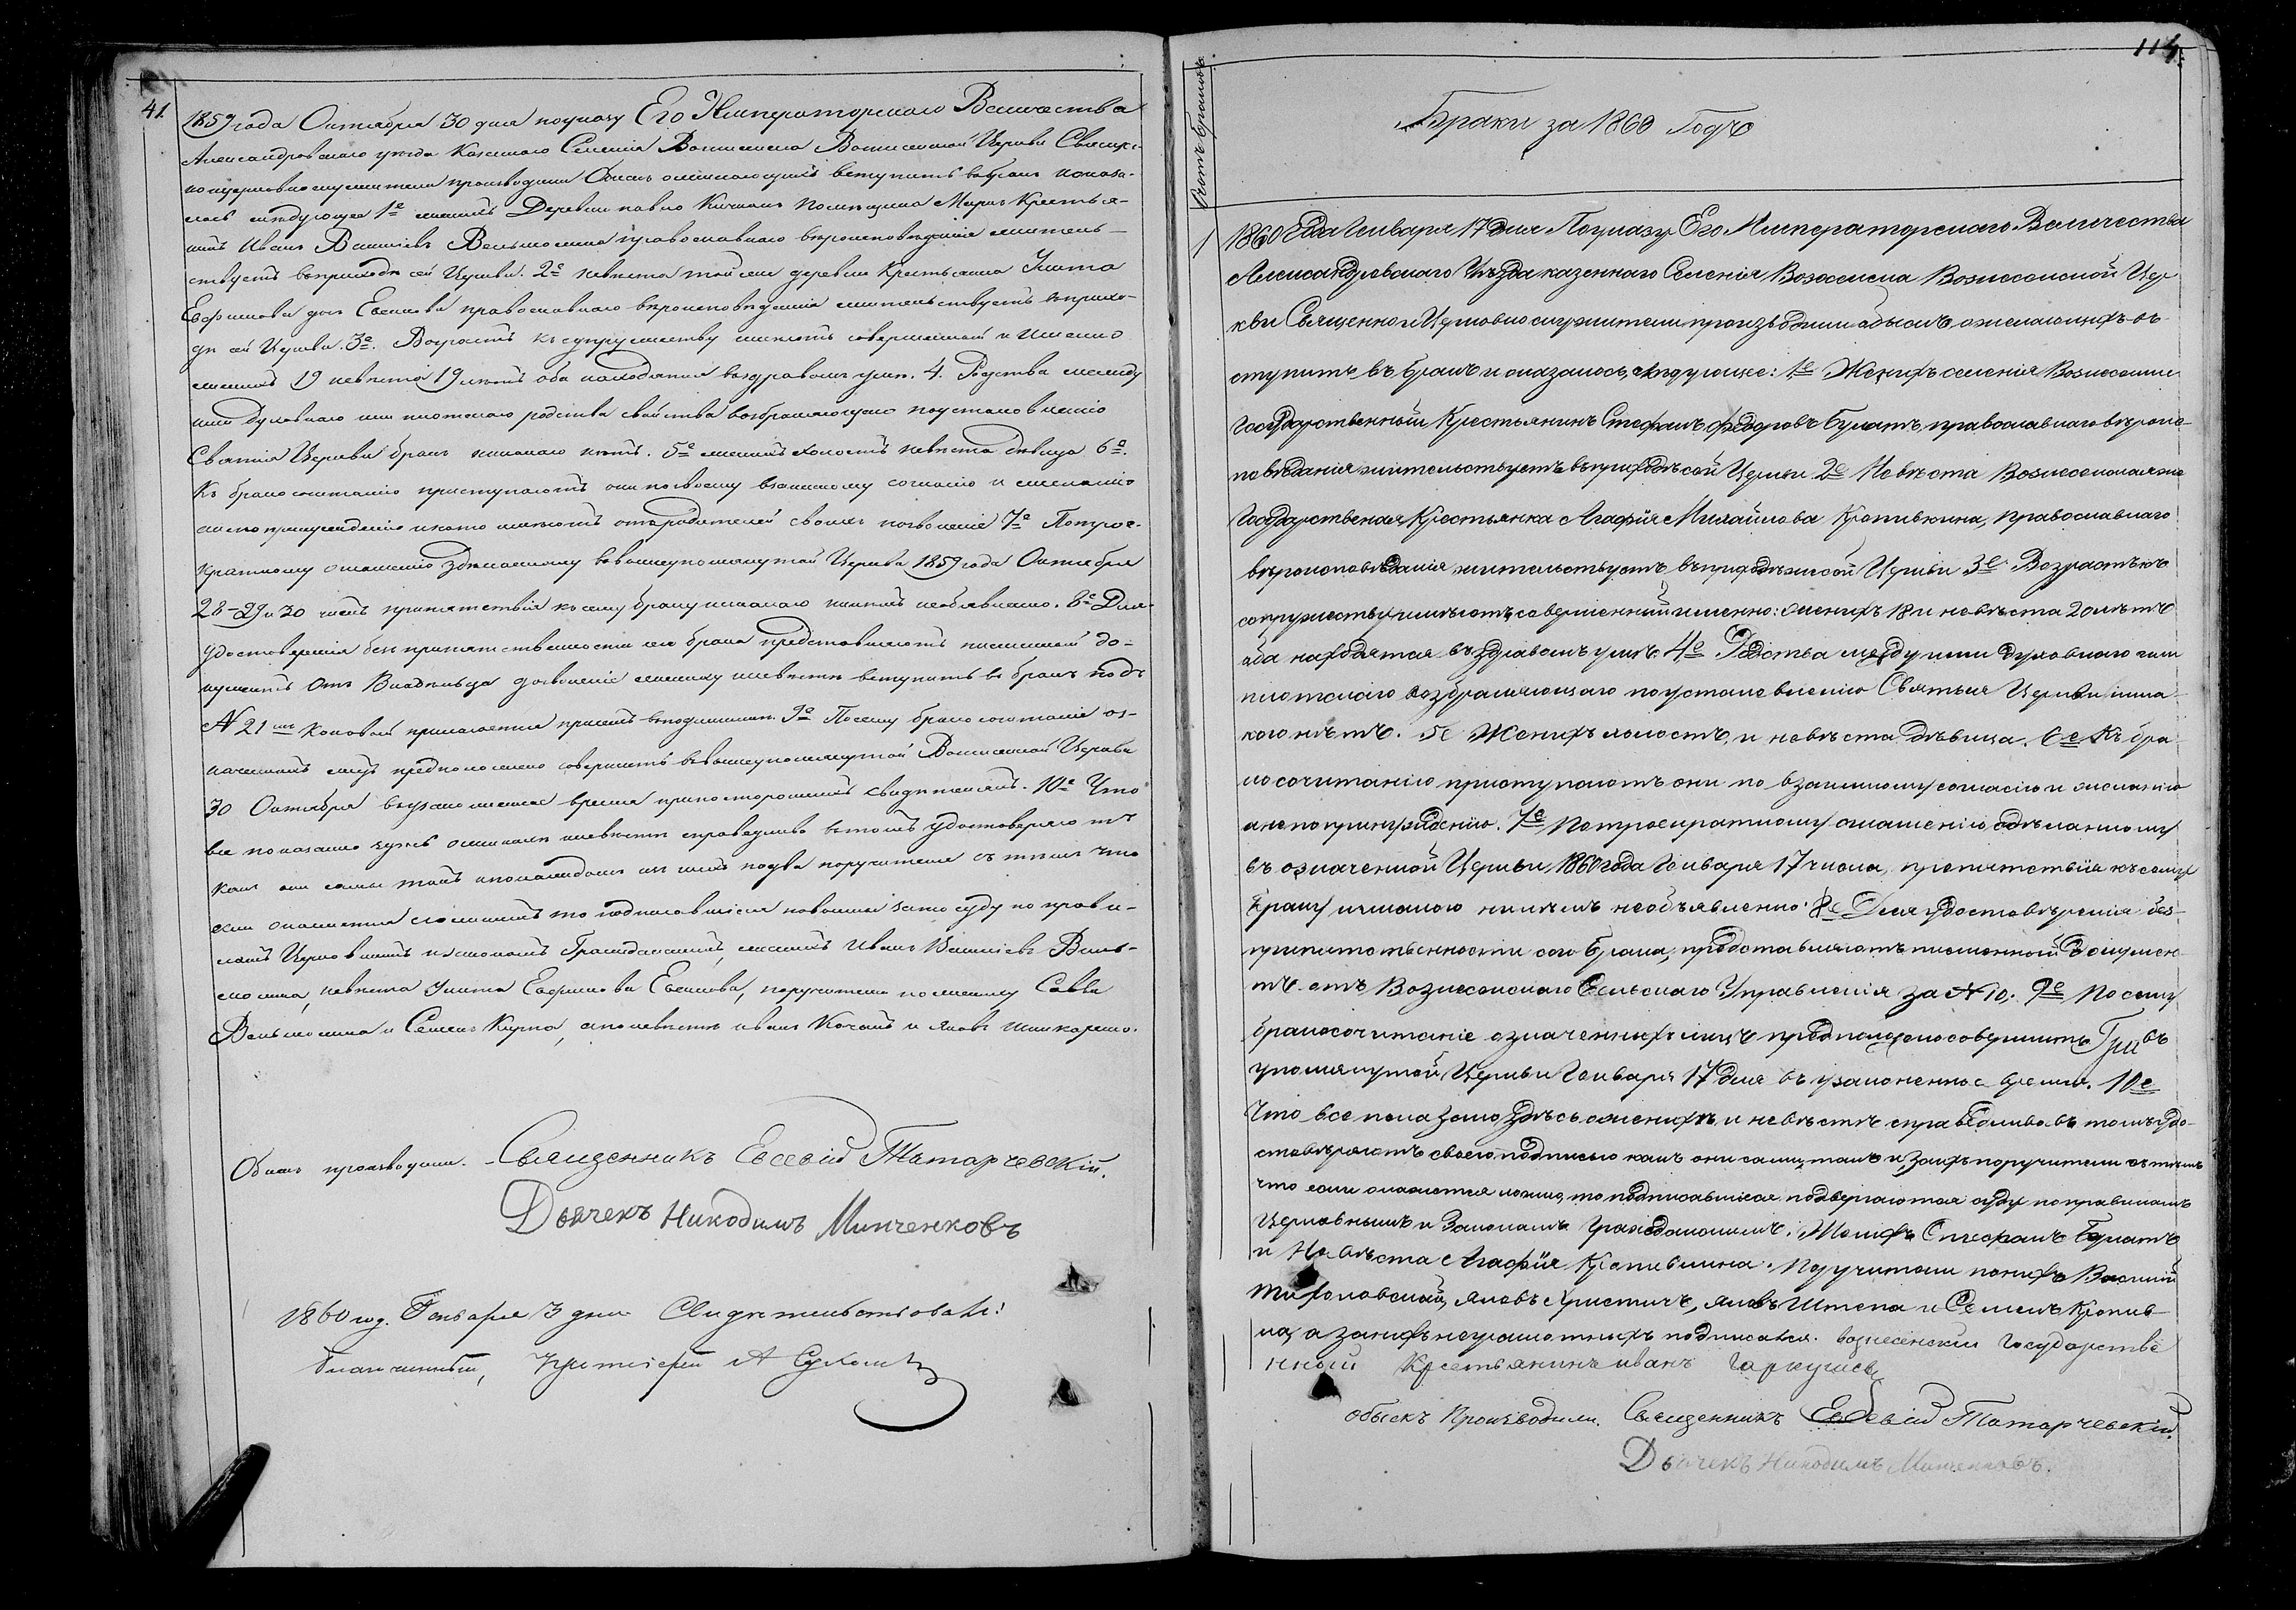 41.
1859 года Октября 30 дня по указу Его Императорскаго Величества
Александровскаго уезда Казеннаго Селения Вознесенской Церкви Священно-
церковнослужители производили Обыскъ о желающихъ вступить въ бракъ и оказа-
лось следующее 1е женихъ Деревни Помещика Кресть-я-
нинъ Иванъ православнаго вероисповедания житель-
ствуетъ въ приходе сей Церкви. 2е невеста той же деревни Крестьянка Улита
Евфимова православнаго вероисповедания жительствуетъ въ прихо-
де сей Церкви. 3е. Возрастъ къ супружеству имеютъ совершенной и именно
женихъ 19 невеста 19 летъ оба находятся въ здравомъ уме. 4. Родства между
ими духовнаго или плотскаго родства свойства возбраняющаго по установлению
Святыя Церкви бракъ никакого нетъ. 5е женихъ холостъ невеста девица 6е.
Къ бракосочетанию приступаютъ они по своему взаимному согласию и желанию
а не по принуждению и на то имеютъ отъ родителей своихъ позволение 7е По трое-
кратному оглашению зделанному въ вышеупомянутой Церкви 1859 года Октября
28-29 и 30 чиселъ препятствия къ сему браку никакого никемъ необъявлено. 8е Для
удостоверения безпрепятственности сего брака представляютъ письменной до-
кументъ Отъ Владельца дозволение жениху и невесте вступить въ бракъ подъ
N 21 мъ прилагается при семъ въ подлиннике. 9е Посему бракосочетание оз-
наченныхъ лицъ предположено совершить въ вышеупомянутой Церкви
30 Октября въ узаконенное время при постороннихъ свидетеляхъ. 10е Что
все показано здесь о женихе и невесте справедливо въ томъ удостоверяютъ
какъ они сами такъ и по каждомъ изъ нихъ по два поручителя съ темъ что
если окажется ложнымъ то подписавшиеся повинны за то суду по прави-
ламъ Церковнымъ и законамъ Гражданскимъ, женихъ Иванъ
невеста Улита Евфимова, поручители по женихе Савва
и Семенъ, а по невесте Иванъ и Яковъ
Обыск производили. Священникъ Евсевій Татарчевскій.
Дьячекъ Никодимъ Минченковъ
1860 год. Генваря 3 дня Свидетельствовалъ:
благочинный, Протоіерей А
114.
Счетъ браковъ
Браки за 1860 Годъ
1
1860 Года Генваря 17 Дня По указу Его Императорскаго Величества
Александровскаго Уѣзда казеннаго Селенія Вознесенской Цер-
кви Священно и Церковнослужители произвѣдили обыскъ, о желающихъ в-
ступить въ бракъ и оказалось, слѣдующее: 1е Женихъ селенія
Государственный Крестьянинъ Стефанъ Федоровъ Булатъ, православнаго вѣроис-
повѣданія жительствуетъ въ приходѣ сей Церкви 2е Невѣста Вознесенская же
Государственная Крестьянка Агафія Михайлова Кропивкина, Православнаго
вѣроисповѣданія жительствуетъ въ приходѣ же сей Церкви 3е Возрастъ къ
супружеству имѣютъ, совершенный и именно: женихъ 18 и невѣста 20 лѣтъ
оба находятся въ здравомъ умѣ. 4е Родства между ими духовнаго или
плотскаго возбраняющаго по установленію Святыя Церкви ника-
кого нѣтъ. 5е Женихъ холостъ, и невѣста дѣвица. 6е Къ бра-
косочитанію приступаютъ они по взаимному согласію и желанію
а не по принужденію. 7е По троекратному оглашенію, сдѣланному
въ означенной Церкви, 1860 года Генваря 17 числа, препятствія къ сему
браку никакого никѣмъ необъявленно. 8е Для удостовѣренія без-
препятственности сего брака, представляютъ письменной докумен-
тъ отъ Вознесенскаго Сельскаго Управленія за N 10. 9е По сему
бракосочитаніе означенныхъ лицъ предположено совершить въ
упомянутой Церкви Генваря 17 Дня въ узаконенное время. 10е
Что все показано здѣсь о женихѣ, и невѣстѣ справедливо въ томъ удо-
стовѣряютъ своею подписью какъ они сами, такъ и за нихъ поручители съ тѣмъ
что если окажется ложно, то подписавшіеся подвергаются суду по правиламъ
Церковнымъ и Законамъ гражданскимъ. Женихъ Стефанъ Булатъ
и Невѣста Агафія Кропивкина. Поручители по нихъ Василій
Яковъ Яковъ Штепа и Семенъ Кропив-
ка, а за нихъ неграмотныхъ подписался. вознесенский государстве
нной крестьянинъ иванъ
обыскъ производили. Священникъ Евсевій Татарчевскій.
Дьячекъ Никодимъ Минченковъ.